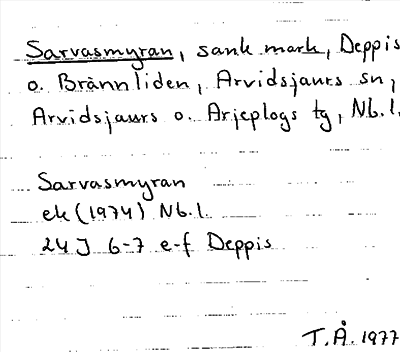 Sarvasmyran, sank mark, Deppis
o. Brännliden, Arvidsjaurs sn,
Arvidsjaurs o. Arjeplogs tg, Nb.l.
Sarvasmyran
ek (1974) Nb.l.
24J 6-7 e-f Deppis
T.Å. 1977